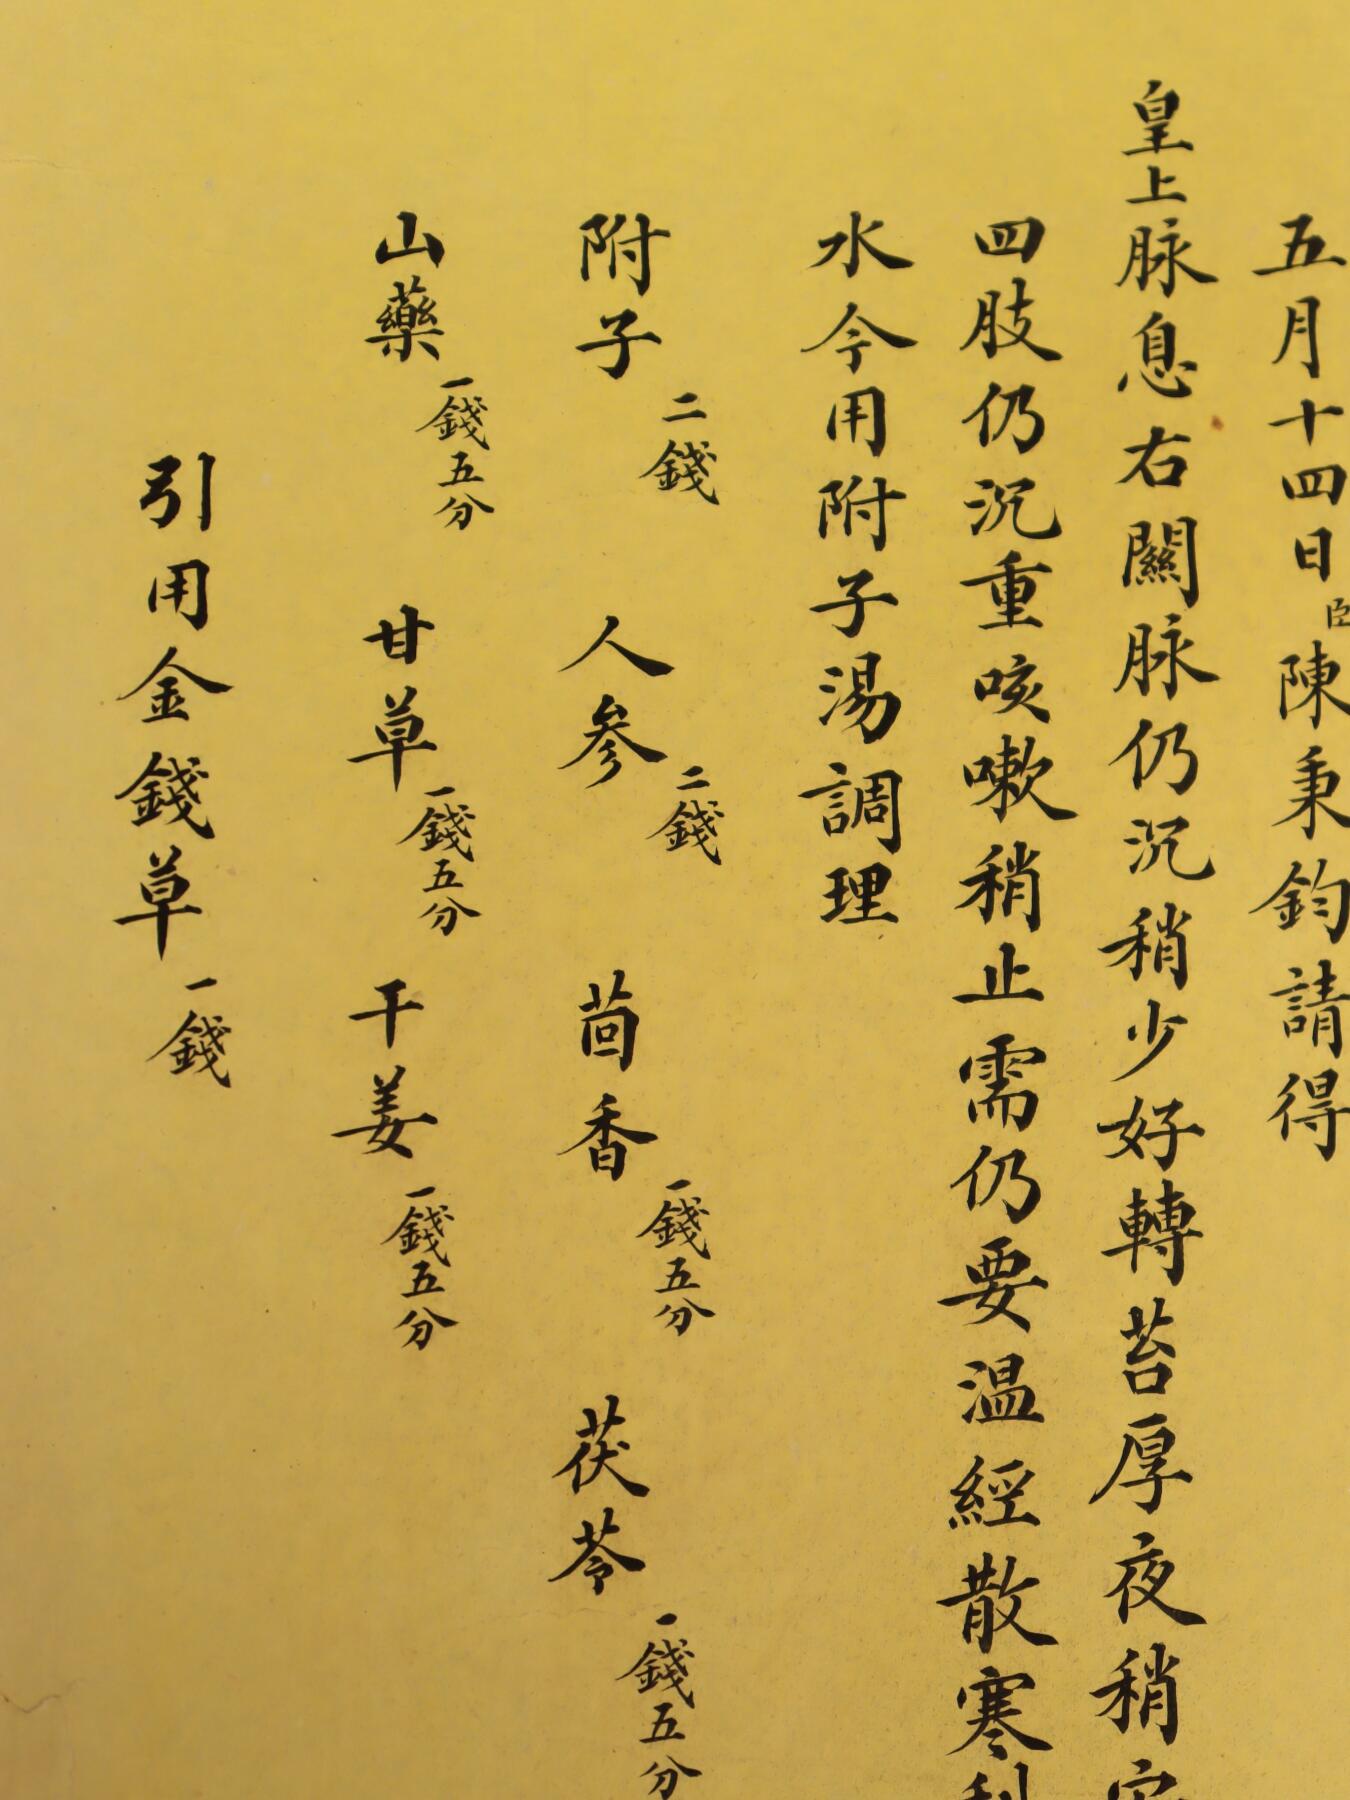 五月十四日臣陳秉鈞請得
皇上脉息右關脉仍沉稍少好轉苔厚夜稍安
四肢仍沉重咳嗽稍止需仍要温經散寒利
水今用附子湯調理
附子二錢 人參二錢 茴香一錢五分 茯苓一錢五分
山藥一錢五分 甘草一錢五分 干姜一錢五分
引用金錢草一錢